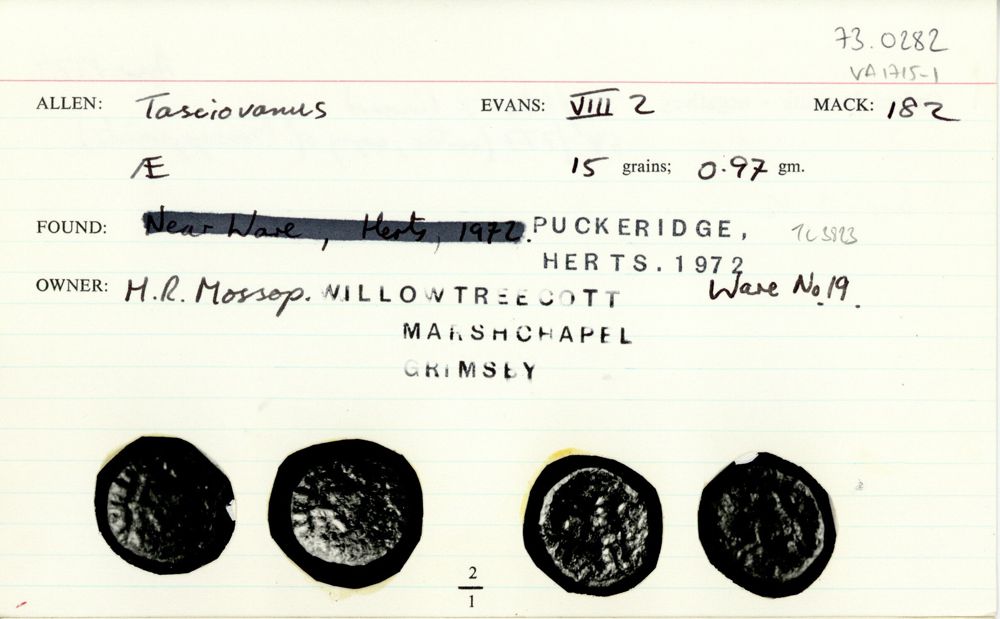 73.0282
VA1715-1
ALLEN: Tasciovanus EVANS: VIII 2 MACK: 182
Æ 15 grains; 0.97 gm.
FOUND: Near Ware, Herts, 1972. PUCKERIDGE,
HERTS. 1972
OWNER: H.R. Mossop. WILLOWTREECOTT Ware No.19.
MARSHCHAPEL
GRIMSBY
2
1